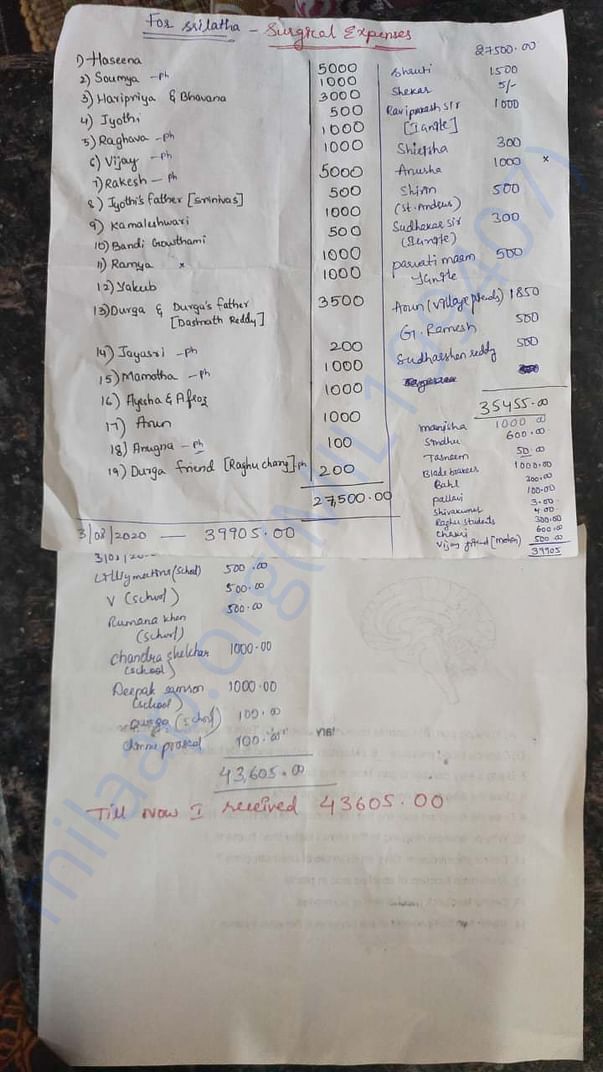 For Srilatha - Surgical Expenses
1) Haseena 5000
2) Soumya -ph 1000
3) Haripriya & Bhavana 3000
4) Jyothi 500
5) Raghava -ph 1000
6) Vijay -ph 1000
7) Rakesh -ph 5000
8) Jyothi's father [Srinivas] 500
9) Kamaleshwari 1000
10) Bandi Gowthami 500
11) Ramya x 1000
12) Yakub 1000
13) Durga & Durga's father 3500
[Dashnath Reddy]
14) Jayasri -ph 200
15) Mamatha -ph 1000
16) Ayesha & Afroz 1000
17) Arun 1000
18) Anugna -ph 100
19) Durga friend [Raghu chary] -ph 200
27,500.00
3/08/2020 — 39905.00
27500.00
Shruti 1500
Shekar 5/-
Raviprakash sir 1000
Shirisha 300
Anusha 1000 x
Shirin 500
(St. Andrews)
Sudhakar sir 300
parvati maam 500
Arun (village friends) 1850
G. Ramesh 500
Sudharshan reddy 500
35455.00
Manisha 1000 00
Sindhu 600.00
Tasneem 50.00
Bladebrakers 1000.00
Bahl 200.00
pallavi 100.00
Shivakumar 3.00
Raghu students 4.00
300.00
Chakri 600.00
Vijay friend [mohan] 500.00
39905
3/08/20
(school) 500.00
V (school) 500.00
Rumana khan 500.00
(school)
Chandra shekhar 1000.00
(school)
Deepak samson 1000.00
(school)
Durga (school) 100.00
100.00
43,605.00
Till now I received 43605.00
milaap.org(MIL193407)